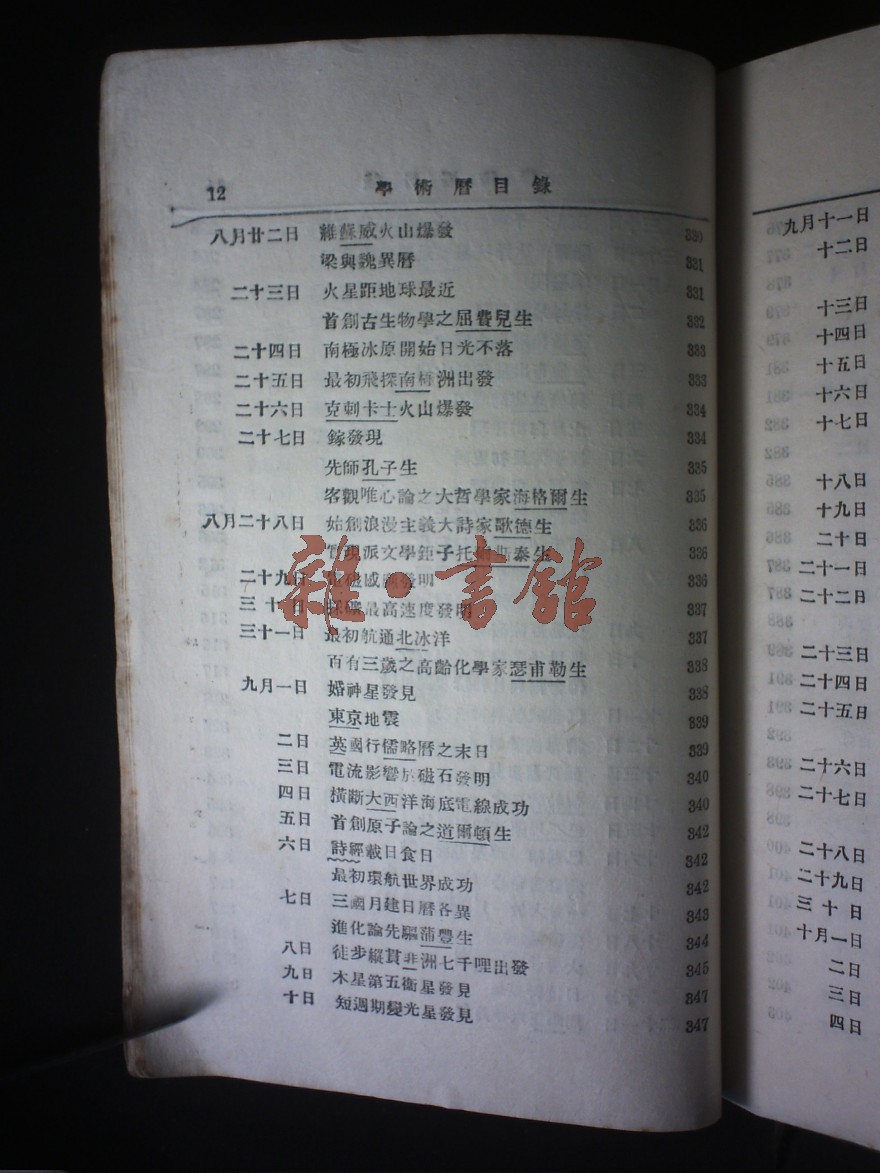 12 學術曆目錄
八月廿二日 維蘇威火山爆發 330
梁與魏異曆 331
二十三日 火星距地球最近 331
首創古生物學之屈費兒生 332
二十四日 南極冰原開始日光不落 333
二十五日 最初飛探南極洲出發 333
二十六日 克剌卡士火山爆發 334
二十七日 鎵發現 334
先師孔子生 335
客觀唯心論之大哲學家海格爾生 335
八月二十八日 始創浪漫主義大詩家歌德生 336
派文學鉅子托 泰生 336
二十九日 磁感應發明 336
三十日 採礦最高速度發明 337
三十一日 最初航通北冰洋 337
百有三歲之高齡化學家瑟甫勒生 338
九月一日 婚神星發見 338
東京地震 339
二日 英國行儒略曆之末日 339
三日 電流影響於磁石發明 340
四日 橫斷大西洋海底電線成功 340
五日 首創原子論之道爾頓生 342
六日 詩經載日食日 342
最初環航世界成功 342
七日 三國月建日曆各異 343
進化論先驅蒲豐生 344
八日 徒步縱貫非洲七千哩出發 345
九日 木星第五衞星發見 347
十日 短週期變光星發見 347
雜·書館
九月十一日
十二日
十三日
十四日
十五日
十六日
十七日
十八日
十九日
二十日
二十一日
二十二日
二十三日
二十四日
二十五日
二十六日
二十七日
二十八日
二十九日
三十日
十月一日
二日
三日
四日